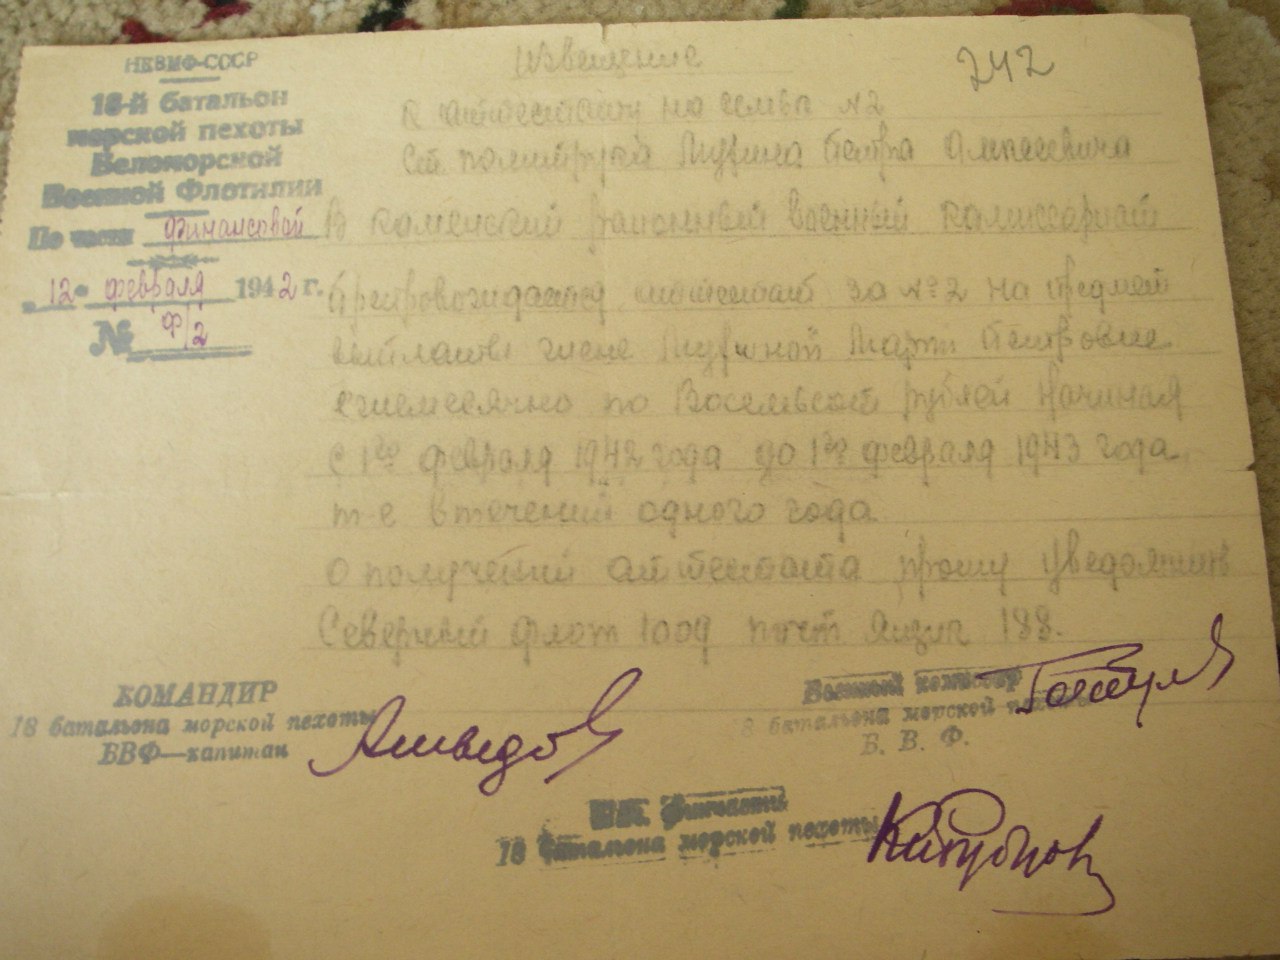 НКВМФ-СССР
18-й батальон
морской пехоты
Беломорской
Военной Флотилии
По части финансовой
"12" февраля 1942 г.
№ Ф/2
Извещение
242
к аттестату на семью №2
Ст. политрука Петра
В каменский районный военный комиссариат
Препровождается аттестат за №2 на предмет
выплаты жене Петровне
ежемесячно по Восемьсот рублей начиная
с 1го февраля 1942 года до 1го февраля 1943 года
т-е в течений одного года
О получений аттестата прошу уведомить
Северный флот 1009 почт ящик 188.
КОМАНДИР
18 батальона морской пехоты
БВФ—капитан
Военный комиссар
8 батальона морской пехоты
Б. В. Ф.
Нач. финчасти
18 батальона морской пехоты